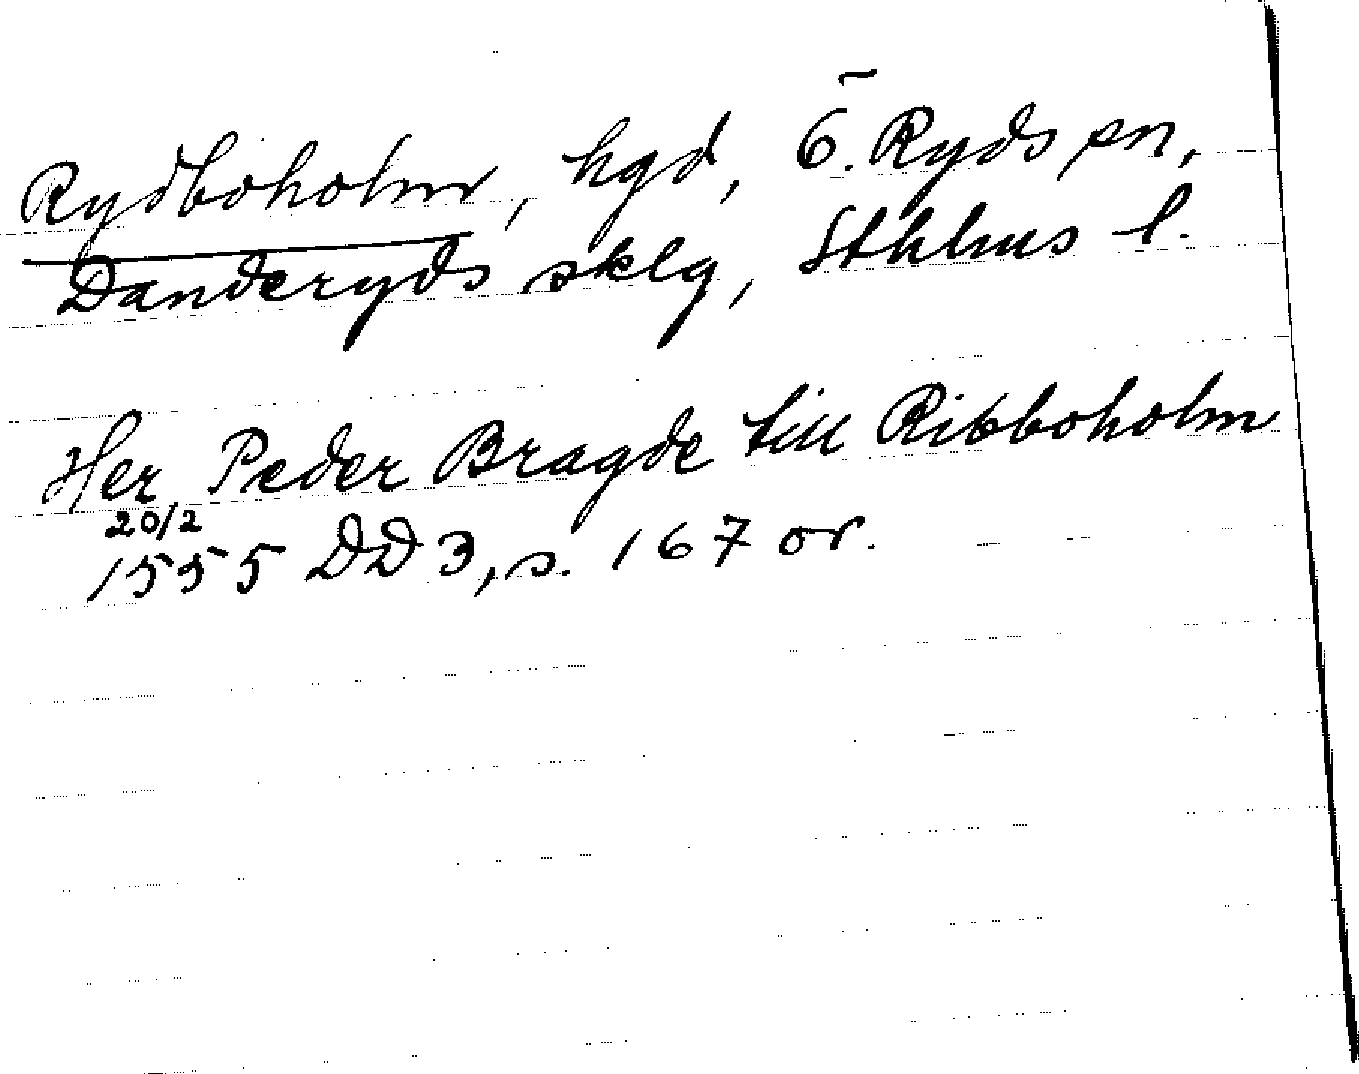 Rydboholm, hgd, Ö. Ryds sn,
Danderyds sklg, Sthlms l.
Her Peder Bragde till Ribboholm
20/2
1555 DD 3, s. 167 or.